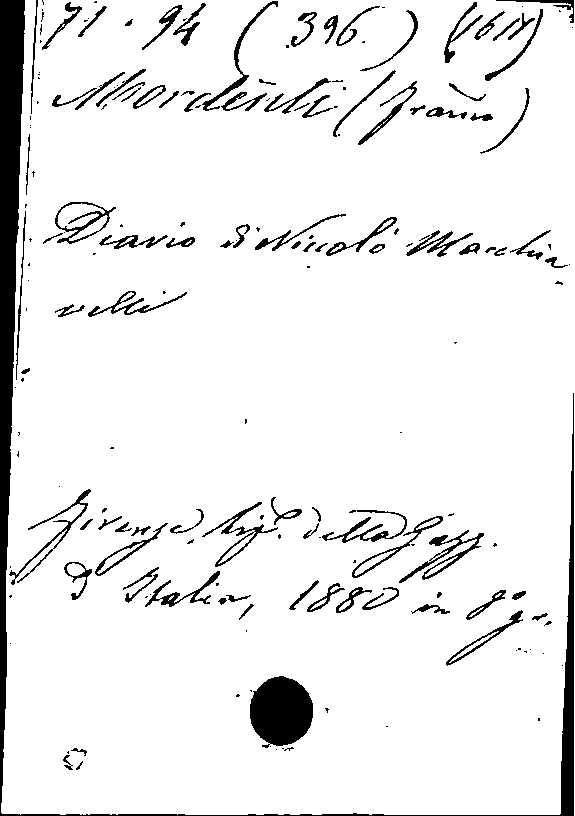 71 · 94 (396.) (1611)
Mordenti (Franco)
Diario di Nicolò Macchia-
velli
Firenze, tip. della Gazz.
d'Italia, 1880 in 8° gr.